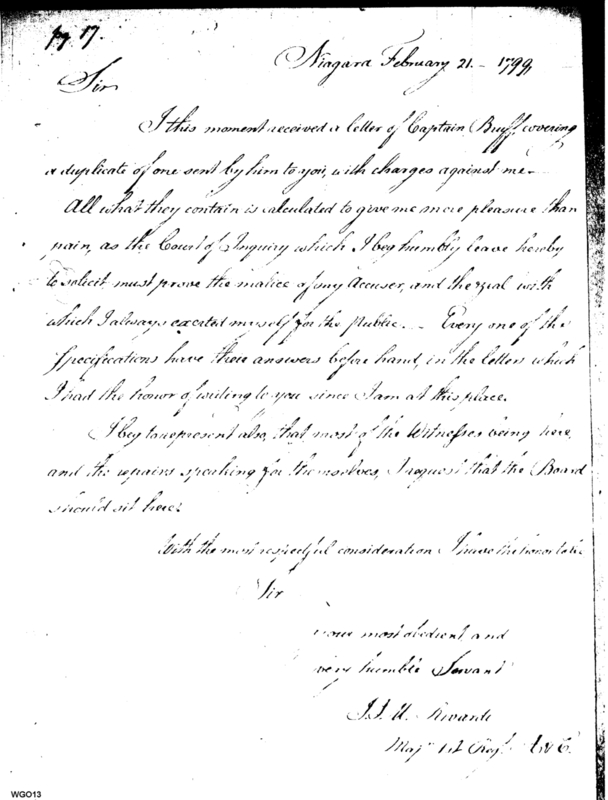 No 17.
Niagara February 21. - 1799,
Sir
I this moment received a letter of Captain Bruff, covering
a duplicate of one sent by him to you, with charges against me -
All what they contain is calculated to give me more pleasure than
pain, as the Court of Inquiry which I beg humbly leave hereby
to solicit must prove the malice of my Accuser, and the zeal with
which I always exerted myself for the Public. - Every one of the
Specifications have their answers before hand, in the letters which
I had the honor of writing to you since I am at this place.
I beg to represent also, that most of the Witnesses being here,
and the repairs speaking for themselves, I request that the Board
should sit here.
With the most respectful consideration I have the honor to be
Sir
your most obedient and
very humble Servant
J.J.U. Rivardi
Majr 1st Regt
WGO13